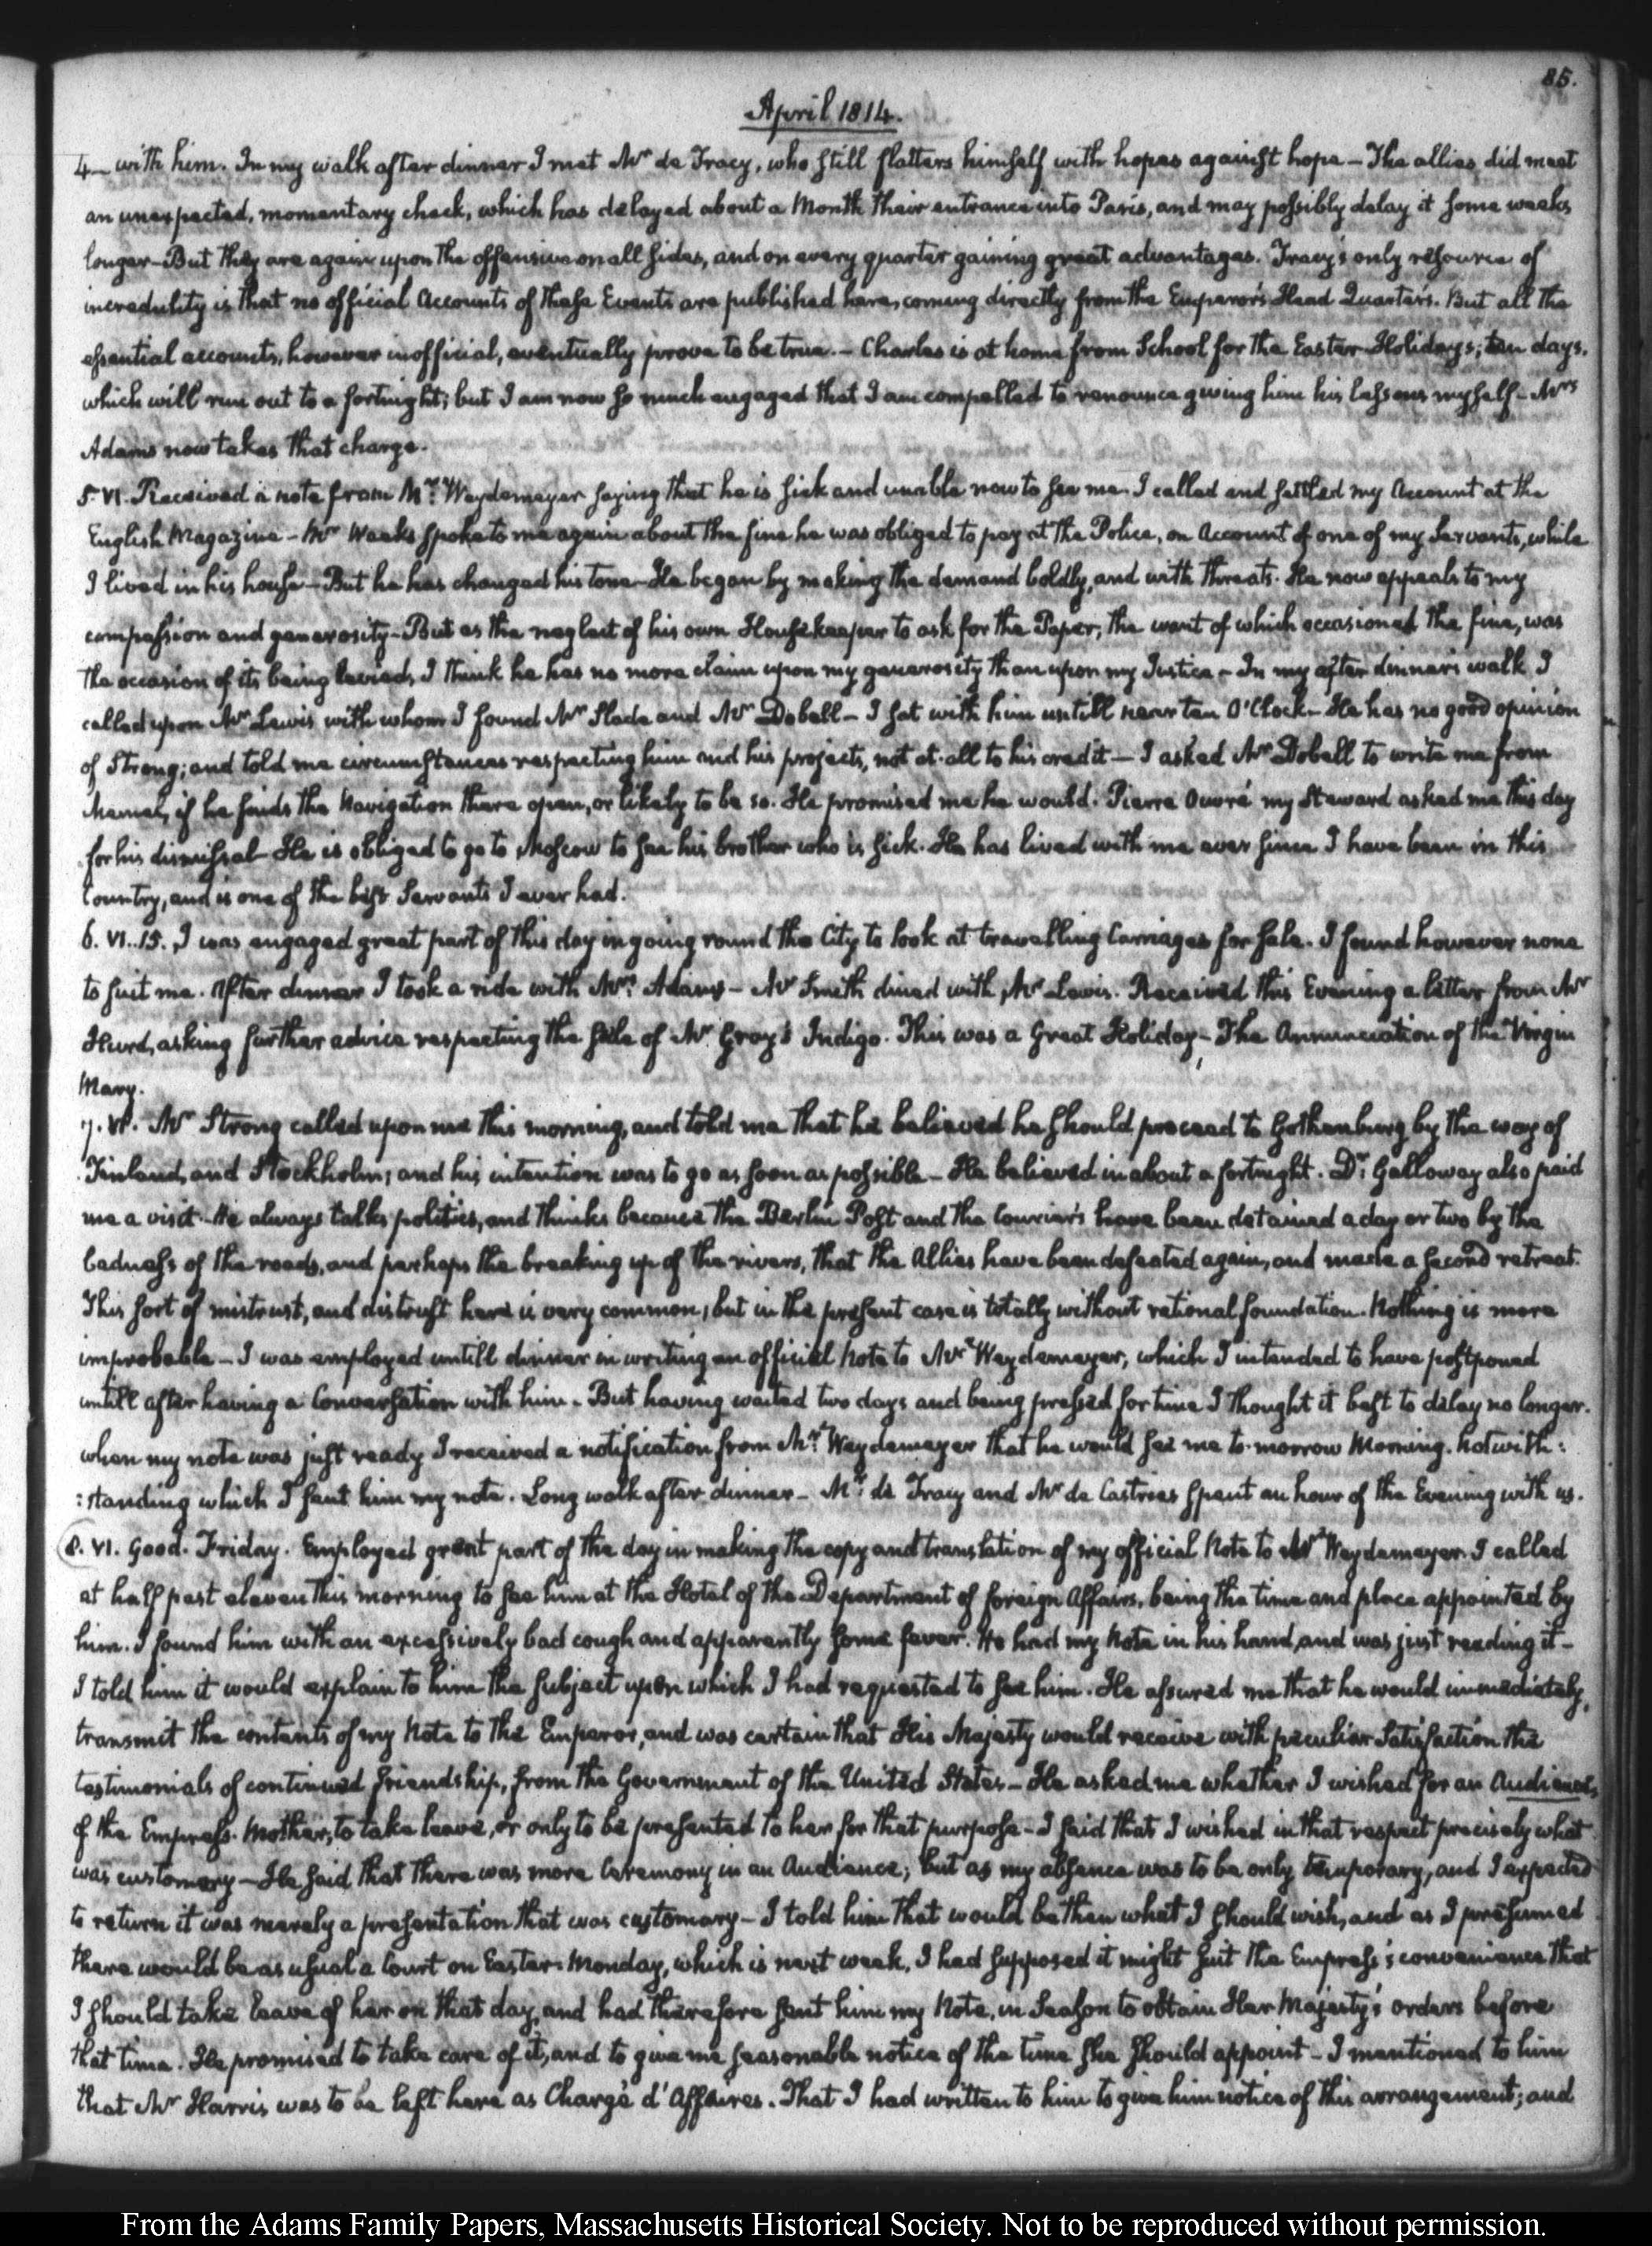 85.
April 1814.
4— with him. In my walk after dinner I met Mr de Tracy, who still flatters himself with hopes against hope— The allies did meet
an unexpected, momentary check, which has delayed about a Month their entrance into Paris, and may possibly delay it some weeks
longer— But they are again upon the offensive on all sides, and on every quarter gaining great advantages. Tracy's only resource of
incredulity is that no official Accounts of these Events are published here, coming directly from the Emperor's Head Quarters. But all the
essential accounts, however inofficial, eventually prove to be true.— Charles is at home from School for the Easter Holidays; ten days.
which will run out to a fortnight; but I am now so much engaged that I am compelled to renounce giving him his lessons myself— Mrs
Adams now takes that charge.
5. VI. Received a note from Mr: Weydemeyer saying that he is sick and unable now to see me. I called and settled my Account at the
English Magazine— Mr Weeks spoke to me again about the fine he was obliged to pay at the Police, on Account of one of my Servants, while
I lived in his house— But he has changed his tone— He began by making the demand boldly, and with threats. He now appeals to my
compassion and generosity— But as the neglect of his own Housekeeper to ask for the Paper, the want of which occasioned the fine, was
the occasion of its being levied, I think he has no more claim upon my generosity than upon my Justice— In my after dinner's walk I
called upon Mr Lewis with whom I found Mr Slade and Mr Dobell— I sat with him untill near ten O'Clock— He has no good opinion
of Strong; and told me circumstances respecting him and his projects, not at all to his credit— I asked Mr Dobell to write me from
Memel, if he finds the Navigation there open, or likely to be so. He promised me he would. Pierre Ouvré my Steward asked me this day
for his dismissal— He is obliged to go to Moscow to see his brother who is sick. He has lived with me ever since I have been in this
Country, and is one of the best Servants I ever had.
6. VI..15. I was engaged great part of this day in going round the City to look at travelling Carriages for sale. I found however none
to suit me. After dinner I took a ride with Mrs: Adams— Mr Smith dined with Mr Lewis. Received this Evening a letter from Mr
Hurd, asking further advice respecting the sale of Mr Gray's Indigo. This was a Great Holiday— The Annunciation of the Virgin
Mary.
7. VI. Mr Strong called upon me this morning, and told me that he believed he should proceed to Gothenburg by the way of
Finland, and Stockholm; and his intention was to go as soon as possible— He believed in about a fortnight. Dr: Galloway also paid
me a visit— He always talks politics, and thinks because the Berlin Post and the Couriers have been detained a day or two by the
badness of the roads, and perhaps the breaking up of the rivers, that the Allies have been defeated again, and made a second retreat.
This sort of mistrust, and distrust here is very common, but in the present case is totally without rational foundation. Nothing is more
improbable— I was employed untill dinner in writing an official Note to Mr Weydemeyer, which I intended to have postponed
untill after having a Conversation with him. But having waited two days and being pressed for time I thought it best to delay no longer.
when my note was just ready I received a notification from Mr: Weydemeyer that he would see me to-morrow Morning. Notwith:
:standing which I sent him my note. Long walk after dinner— Mr: de Tracy and Mr de Castries spent an hour of the Evening with us.
8. VI. Good-Friday. Employed great part of the day in making the copy and translation of my official Note to Mr Weydemeyer. I called
at half past eleven this morning to see him at the Hotel of the Department of foreign Affairs, being the time and place appointed by
him. I found him with an excessively bad cough and apparently some fever. He had my Note in his hand, and was just reading it—
I told him it would explain to him the subject upon which I had requested to see him. He assured me that he would immediately
transmit the contents of my Note to the Emperor, and was certain that His Majesty would receive with peculiar Satisfaction the
testimonials of continued friendship, from the Government of the United States— He asked me whether I wished for an Audience,
of the Empress-Mother, to take leave, or only to be presented to her for that purpose— I said that I wished in that respect precisely what
was customary— He said that there was more Ceremony in an Audience; but as my absence was to be only temporary, and I expected
to return it was merely a presentation that was customary— I told him that would be then what I should wish, and as I presumed
there would be as usual a Court on Easter-Monday, which is next week, I had supposed it might suit the Empress's convenience that
I should take leave of her on that day, and had therefore sent him my Note, in Season to obtain Her Majesty's orders before
that time. He promised to take care of it, and to give me seasonable notice of the time she should appoint— I mentioned to him
that Mr Harris was to be left here as Chargé d'Affaires. That I had written to him to give him notice of this arrangement; and
From the Adams Family Papers, Massachusetts Historical Society. Not to be reproduced without permission.